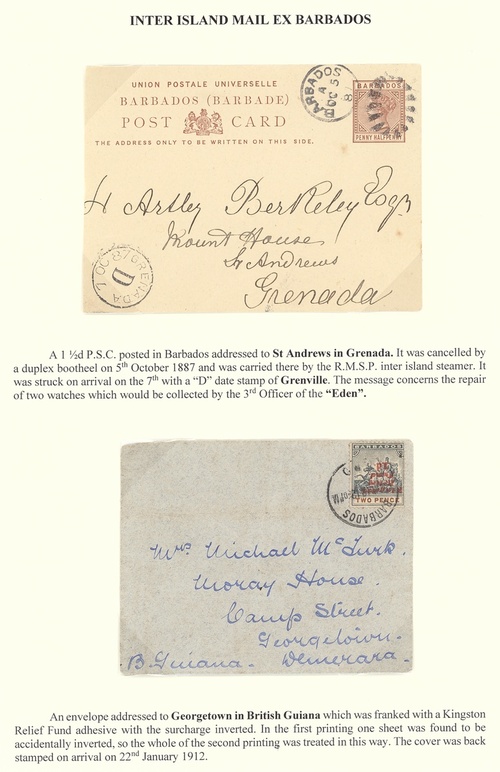 INTER ISLAND MAIL EX BARBADOS
UNION POSTALE UNIVERSELLE
BARBADOS (BARBADE)
POST CARD
THE ADDRESS ONLY TO BE WRITTEN ON THIS SIDE.
BARBADOS
A
OC 5
BARBADOS
PENNY HALFPENNY
H Artley Berkeley Esqr
Mount House
St Andrews
Grenada
GRENADA
7 OC 87
D
A 1 ½d P.S.C. posted in Barbados addressed to St Andrews in Grenada. It was cancelled by
a duplex bootheel on 5th October 1887 and was carried there by the R.M.S.P. inter island steamer. It
was struck on arrival on the 7th with a “D” date stamp of Grenville. The message concerns the repair
of two watches which would be collected by the 3rd Officer of the “Eden”.
BARBADOS
TWO PENCE
BARBADOS
Mrs Michael McTurk.
Moray House.
Camp Street.
Georgetown.
B. Guiana. Demerara.
An envelope addressed to Georgetown in British Guiana which was franked with a Kingston
Relief Fund adhesive with the surcharge inverted. In the first printing one sheet was found to be
accidentally inverted, so the whole of the second printing was treated in this way. The cover was back
stamped on arrival on 22nd January 1912.